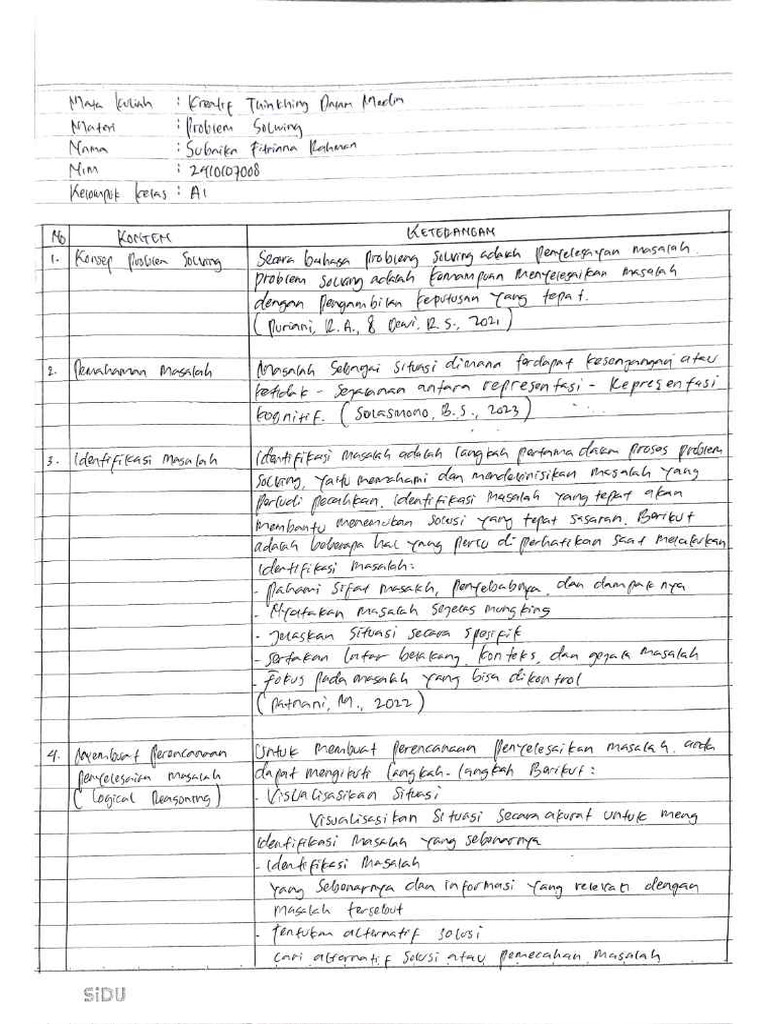 Mata kuliah : Kreatif Thinkhing Dalam Media
Materi : Problem Solving
Nama : Subaika Fitrinna Rahman
Nim : 2410107008
Kelompok kelas : A1
No KONTEN KETERANGAN
1. Konsep Problem Solving Secara bahasa probleng solving adalah penyelesayan masalah.
problem solving adalah kemampuan menyelesaikan masalah
dengan pengambilan keputusan yang tepat.
(Puriani, R.A., & Dewi, R.S., 2021)
2. Pemahaman Masalah Masalah Sebagai situasi dimana terdapat kesenjangan atau
ketidak - Sejalanan antara representasi - Representasi
kognitif. (Sulasmono, B.S., 2023)
3. Identifikasi Masalah Identifikasi masalah adalah langkah pertama dalam proses problem
solving, yaitu memahami dan mendefinisikan masalah yang
perlu di pecahkan. Identifikasi masalah yang tepat akan
membantu menemukan solusi yang tepat sasaran. Berikut
adalah beberapa hal yang perlu di perhatikan saat melakukan
Identifikasi masalah:
- Pahami Sifat masalah, penyebabnya, dan dampak nya
- Nyatakan masalah sejelas mungking
- Jelaskan Situasi secara spesifik
- Sertakan latar belakang, konteks, dan gejala masalah
- Fokus pada masalah yang bisa dikontrol
(Patnani, M., 2022)
4. Membuat perencanaan Untuk membuat perencanaan penyelesaikan masalah. anda
penyelesaian masalah dapat mengikuti langkah-langkah Berikut:
(Logical Reasoning) - Visualisasikan Situasi
Visualisasikan Situasi Secara akurat untuk meng
identifikasi masalah yang sebenarnya
- Identifikasi Masalah
yang sebenarnya dan informasi yang relevan dengan
masalah tersebut
- Tentukan alternatif solusi
Cari alternatif Solusi atau pemecahan masalah
SiDU